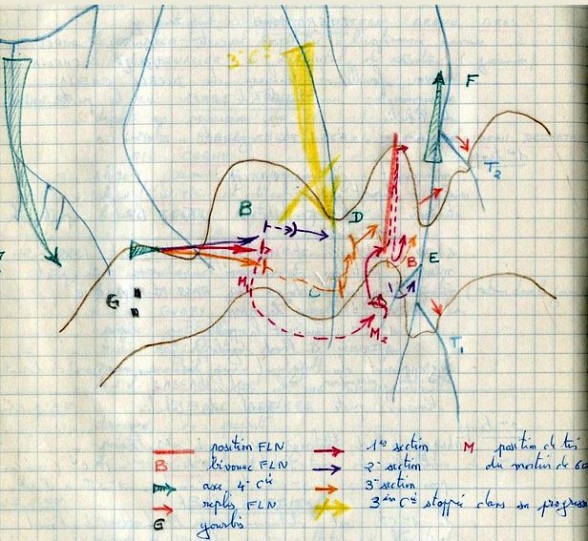 3e Cie
F
T2
B
D
B
E
G
M1
C
M2
T1
position FLN
B bivouac FLN
axe 4e Cie
replis FLN
G gourbis
1re section
2e section
3e section
3ème Cie stoppée dans sa progress
M position de tir
du mortier de 60